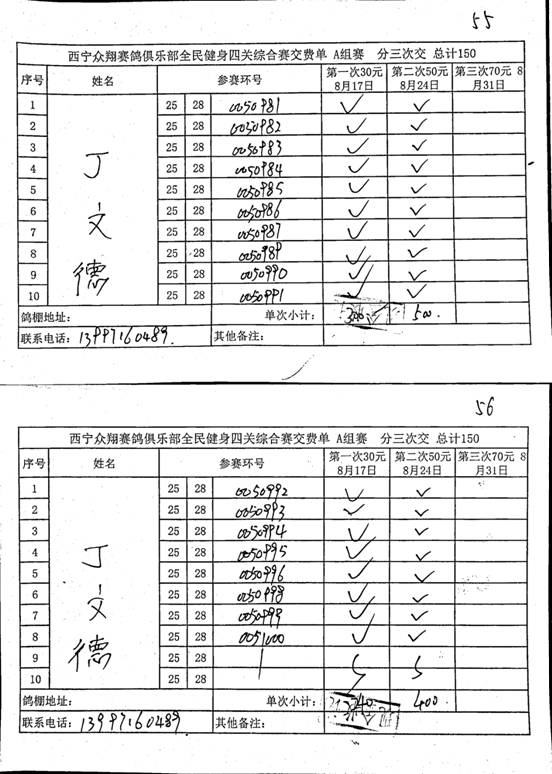 55
西宁众翔赛鸽俱乐部全民健身四关综合赛交费单 A组赛 分三次交 总计150
序号 姓名 参赛环号 第一次30元 8月17日 第二次50元 8月24日 第三次70元 8月31日
1 25 28 0050981 ✓ ✓
2 25 28 0050982 ✓ ✓
3 25 28 0050983 ✓ ✓
4 丁 25 28 0050984 ✓ ✓
5 25 28 0050985 ✓ ✓
6 文 25 28 0050986 ✓ ✓
7 25 28 0050987 ✓ ✓
8 25 28 0050989 ✓ ✓
9 德 25 28 0050990 ✓ ✓
10 25 28 0050991 ✓ ✓
鸽棚地址: 单次小计: 300 500.
联系电话: 13997160489. 其他备注:
56
西宁众翔赛鸽俱乐部全民健身四关综合赛交费单 A组赛 分三次交 总计150
序号 姓名 参赛环号 第一次30元 8月17日 第二次50元 8月24日 第三次70元 8月31日
1 25 28 0050992 ✓ ✓
2 25 28 0050993 ✓ ✓
3 25 28 0050994 ✓ ✓
4 丁 25 28 0050995 ✓ ✓
5 25 28 0050996 ✓ ✓
6 文 25 28 0050998 ✓ ✓
7 25 28 0050999 ✓ ✓
8 德 25 28 0051000 ✓ ✓
9 25 28
10 25 28
鸽棚地址: 单次小计: 240 400.
联系电话: 13997160489 其他备注: